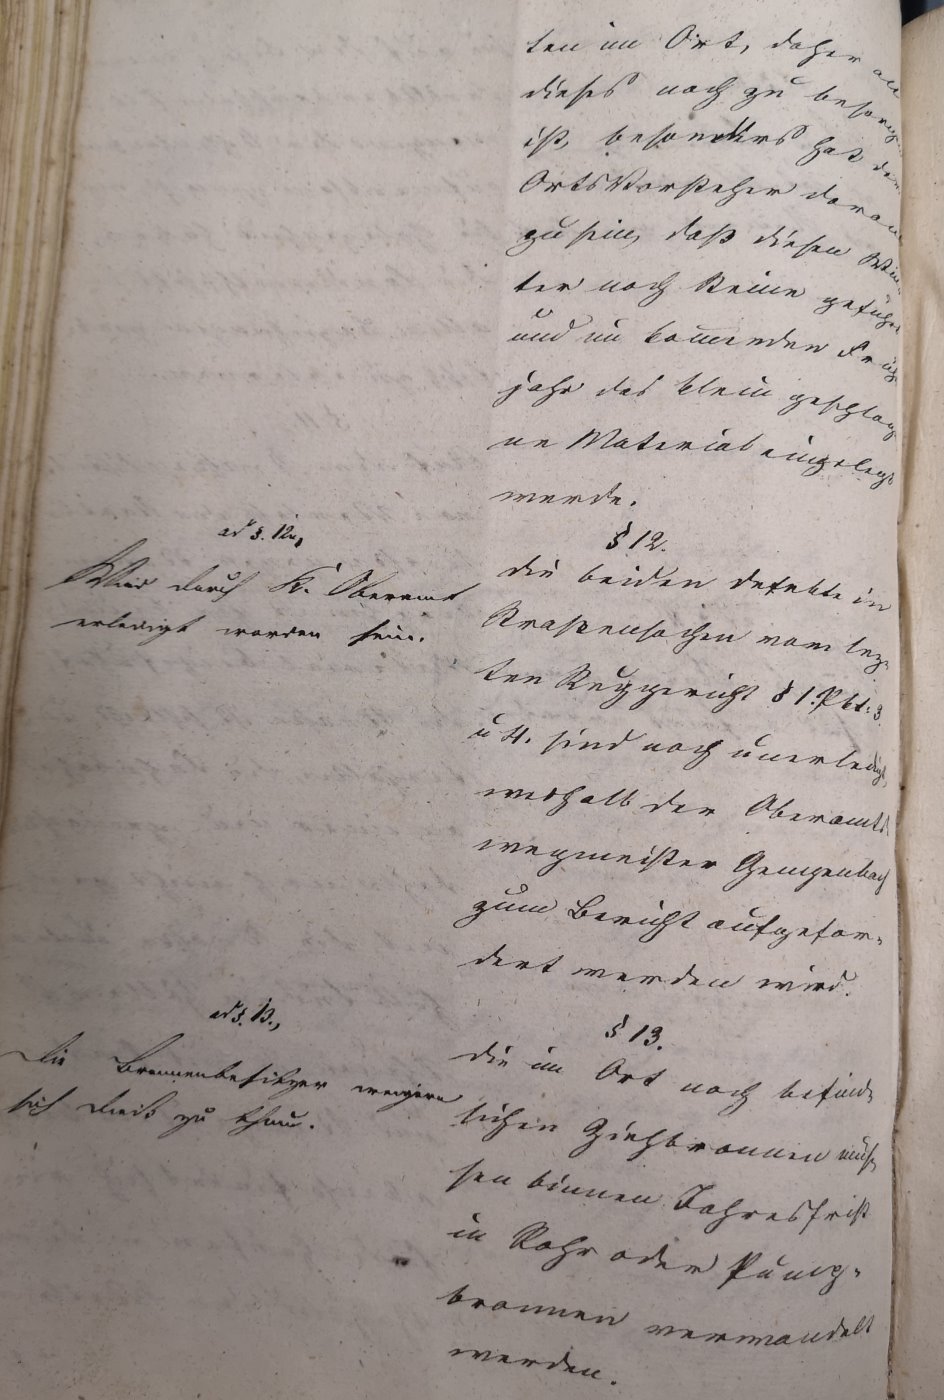 ten im Ort, daher
dieses noch zu besorgen
ist, besonders hat
Ortsvorsteher daran
zu sein, daß diesen Win
ter noch Steine geführt
und im kommenden Früh
jahr das klein geschlage
ne Material eingelegt
werde.
ad §. 12.,
Wird durch K. Oberamt
erledigt worden sein.
§ 12.
die beiden Defekte in
Straßensachen vom lez
ten Ruggericht § 1. Pkt. 3.
u 4. sind noch unerledigt,
weshalb der Oberamts
wegmeister Gengenbach
zum Bericht aufgefor-
dert werden wird.
ad §. 13.,
Die Bronnenbesitzer weigern
sich dieß zu thun.
§ 13.
die im Ort noch befind-
lichen Ziehbronnen müs
sen binnen Jahresfrist
in Rohr oder Pump-
bronnen verwandelt
werden.